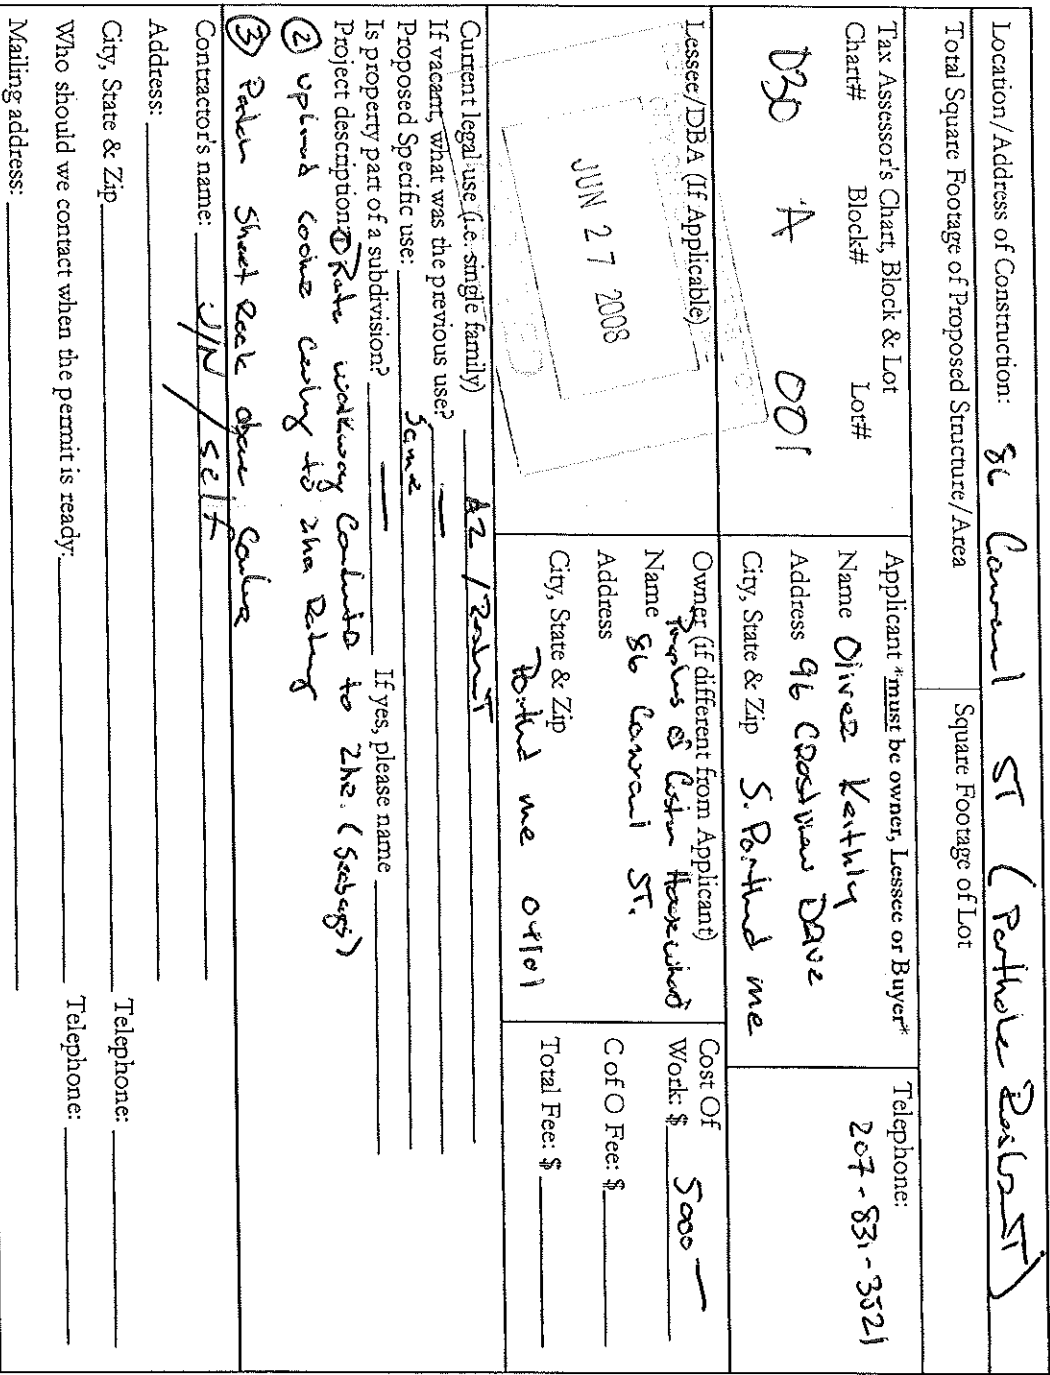 Location/Address of Construction: 86 Commercial ST (Porthole Restaurant)
Total Square Footage of Proposed Structure/Area
Square Footage of Lot
Tax Assessor's Chart, Block & Lot
Chart# Block# Lot#
030 A 001
Applicant *must be owner, Lessee or Buyer*
Name Oliver Keithly
Address 96 Crestview Drive
City, State & Zip S. Portland me
Telephone:
207-831-3521
Lessee/DBA (If Applicable)
JUN 27 2008
Owner (if different from Applicant)
Name of Custom House wharf
Address 86 Commercial ST.
City, State & Zip
Portland me 04101
Cost Of
Work: $ 5000 —
C of O Fee: $
Total Fee: $
Current legal use (i.e. single family)
If vacant, what was the previous use? —
Proposed Specific use: Same
Is property part of a subdivision? — If yes, please name
Project description: ① Rate walkway to 2hr.
② cooler ceiling to 2hr Rating
③ Patch Sheet Rock above Cooler
Contractor's name: /self
Address:
City, State & Zip Telephone:
Who should we contact when the permit is ready: Telephone:
Mailing address: